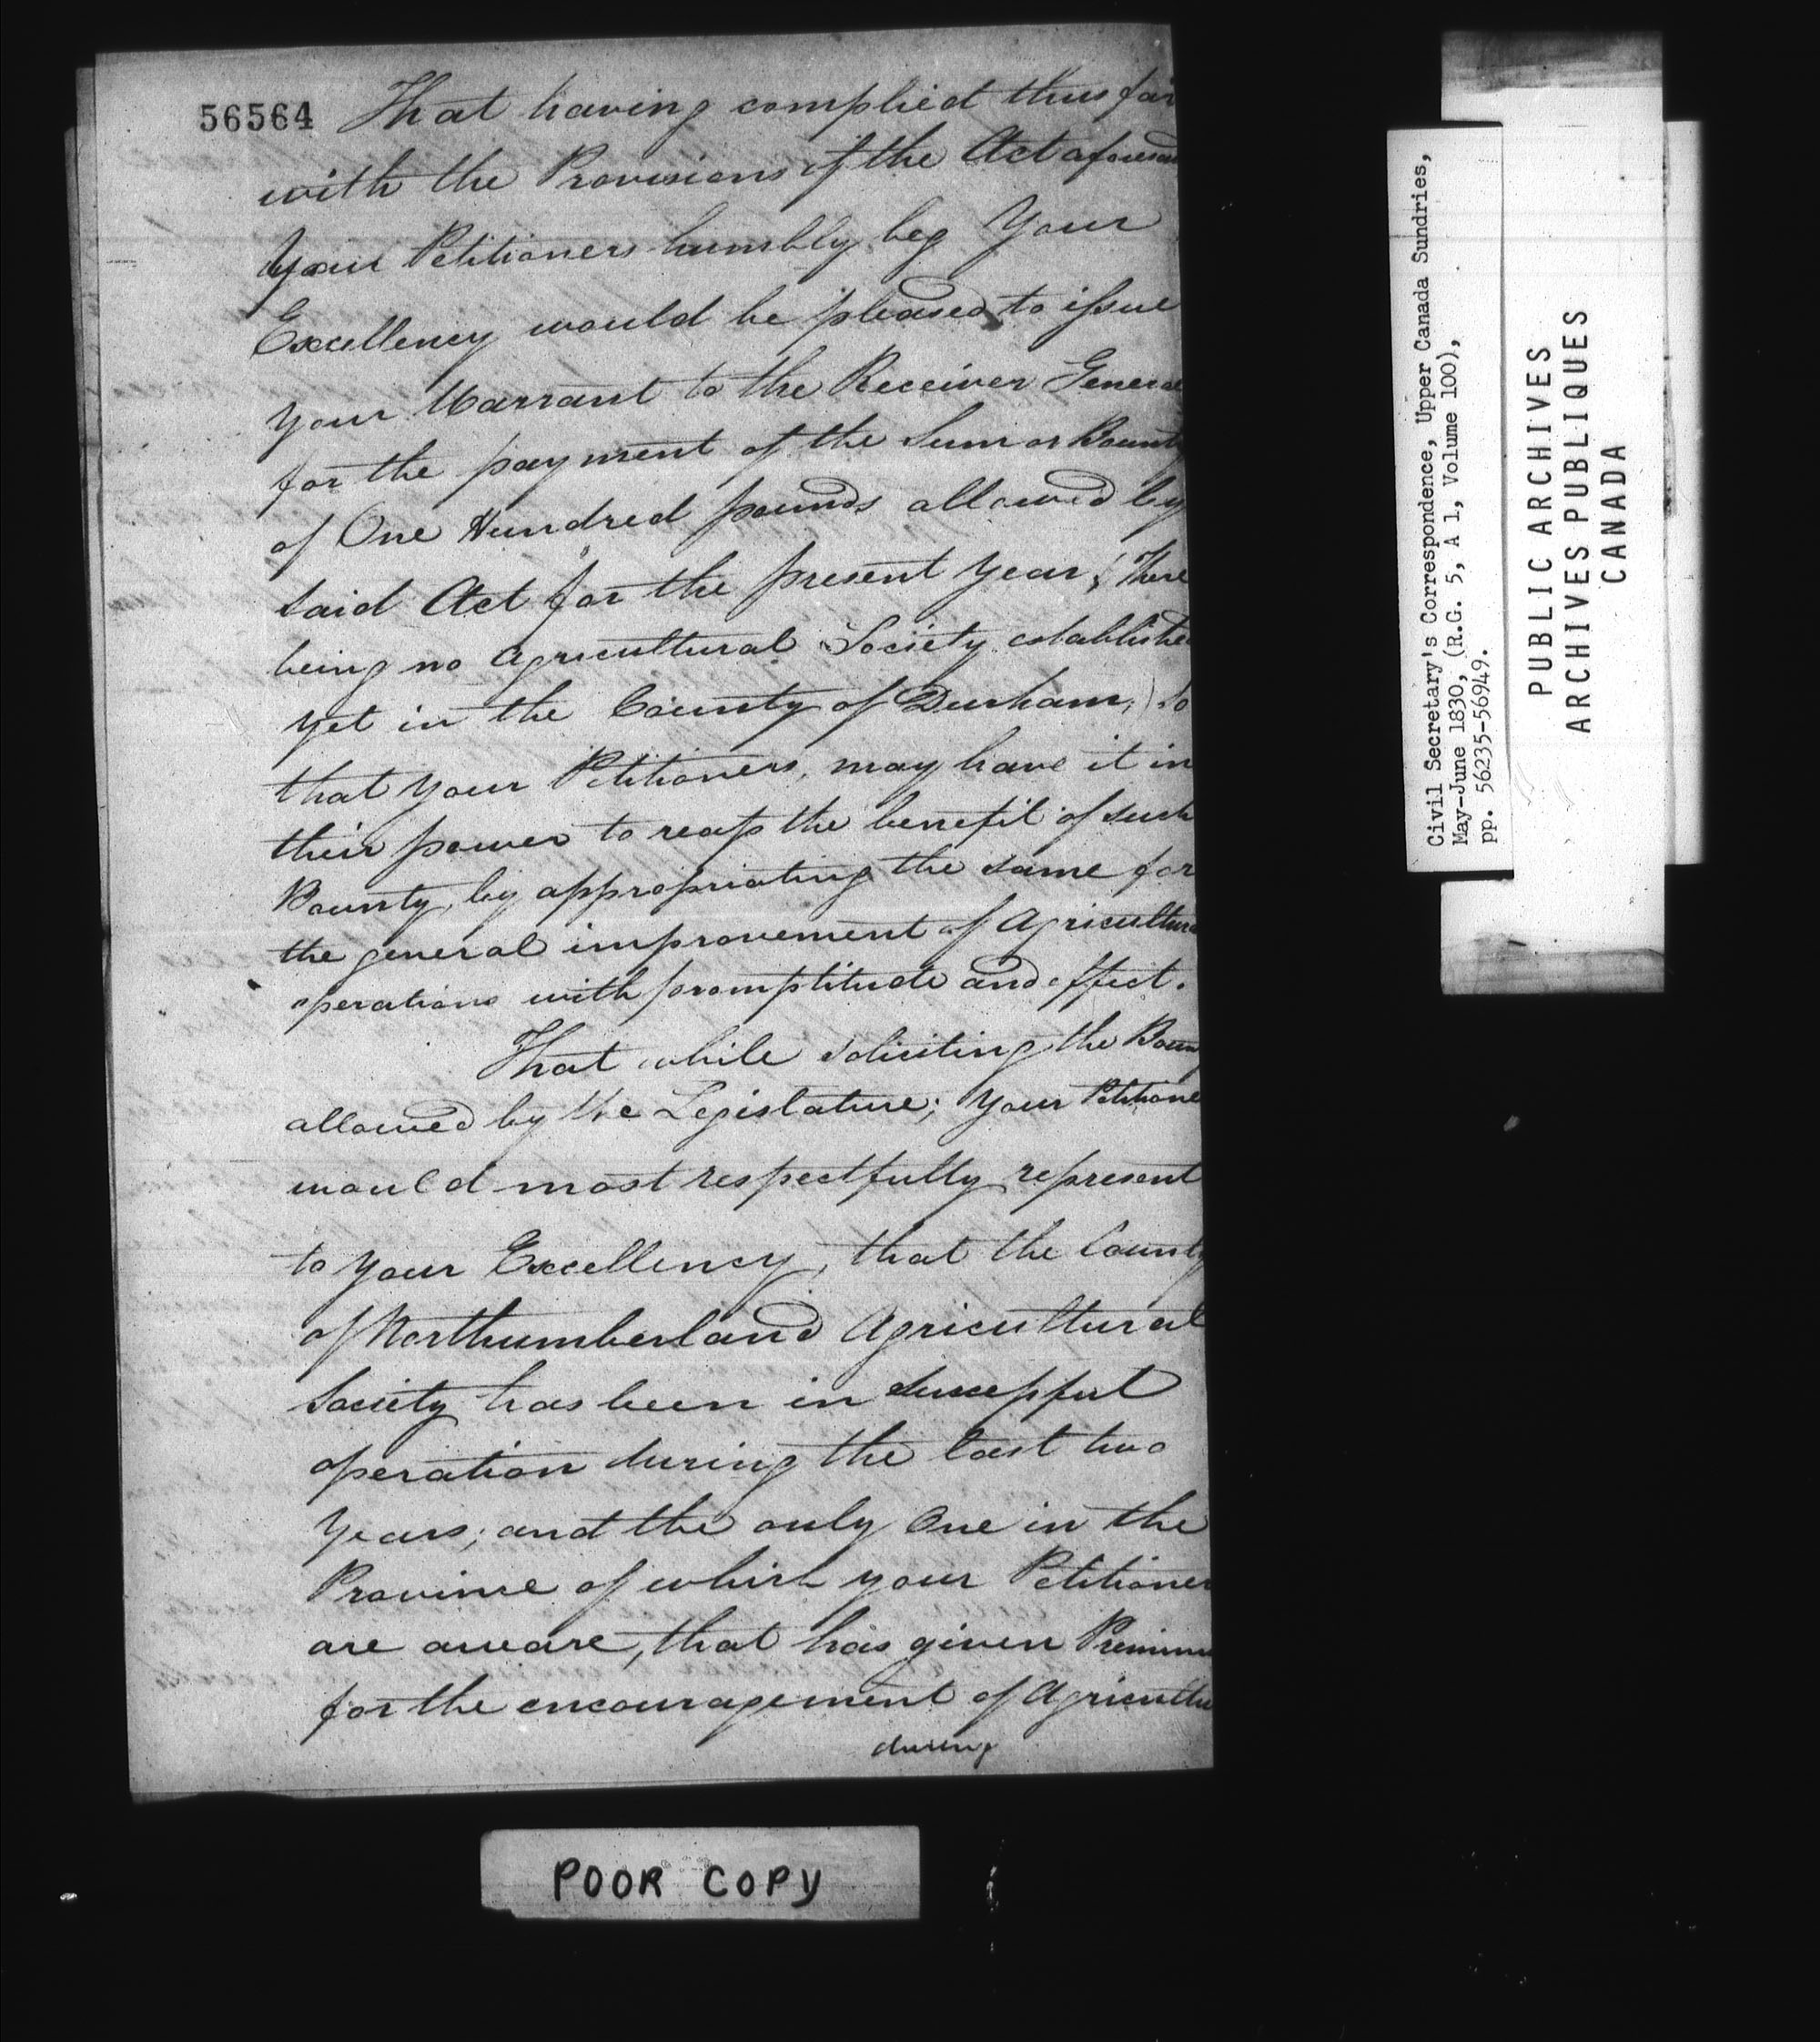 56564 That having complied thus far
with the Provisions of the Act aforesaid
Your Petitioners humbly beg Your
Excellency would be pleased to issue
your Warrant to the Receiver General
for the payment of the Sum or Bounty
of One Hundred pounds allowed by
said Act for the present year, (There
being no Agricultural Society established
yet in the County of Durham,) so
that your Petitioners, may have it in
their power to reap the benefit of such
Bounty, by appropriating the same for
the general improvement of Agricultural
operations with promptitude and effect.
That while soliciting the Bounty
allowed by the Legislature; Your Petitioners
would most respectfully represent
to Your Excellency, that the County
of Northumberland Agricultural
Society has been in successful
operation during the last two
Years; and the only One in the
Province of which your Petitioners
are aware, that has given Premiums
for the encouragement of Agriculture
during
POOR COPY
Civil Secretary's Correspondence, Upper Canada Sundries,
May-June 1830, (R.G. 5, A 1, Volume 100),
pp. 56235-56949.
PUBLIC ARCHIVES
ARCHIVES PUBLIQUES
CANADA